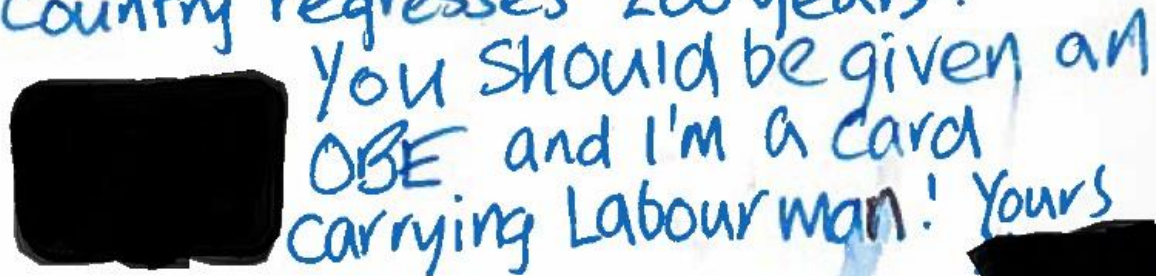 country regresses 200 years!
You should be given an
OBE and I'm a card
carrying Labour man! Yours